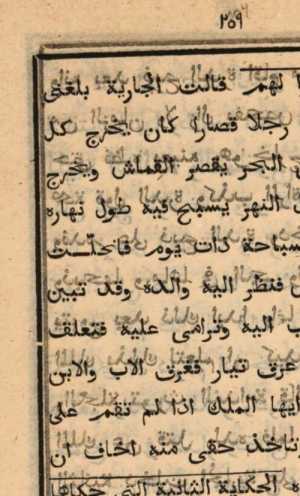 ٢٥٩
لهم قالت الجارية بلغنى
رجلا قصارا كان يخرج كل
البحر يقصر القماش ويخرج
النهر يسبح فيه طول نهاره
سباحة ذات يوم فانحلّت
فنظر اليه والده وقد تبين
اليه وترامى عليه فتعلق
غرق تيار فغرق الاب والابن
ايها الملك اذا لم تقم على
وتاخذ حقى منه اخاف ان
الحكاية الثانية التى حكاها